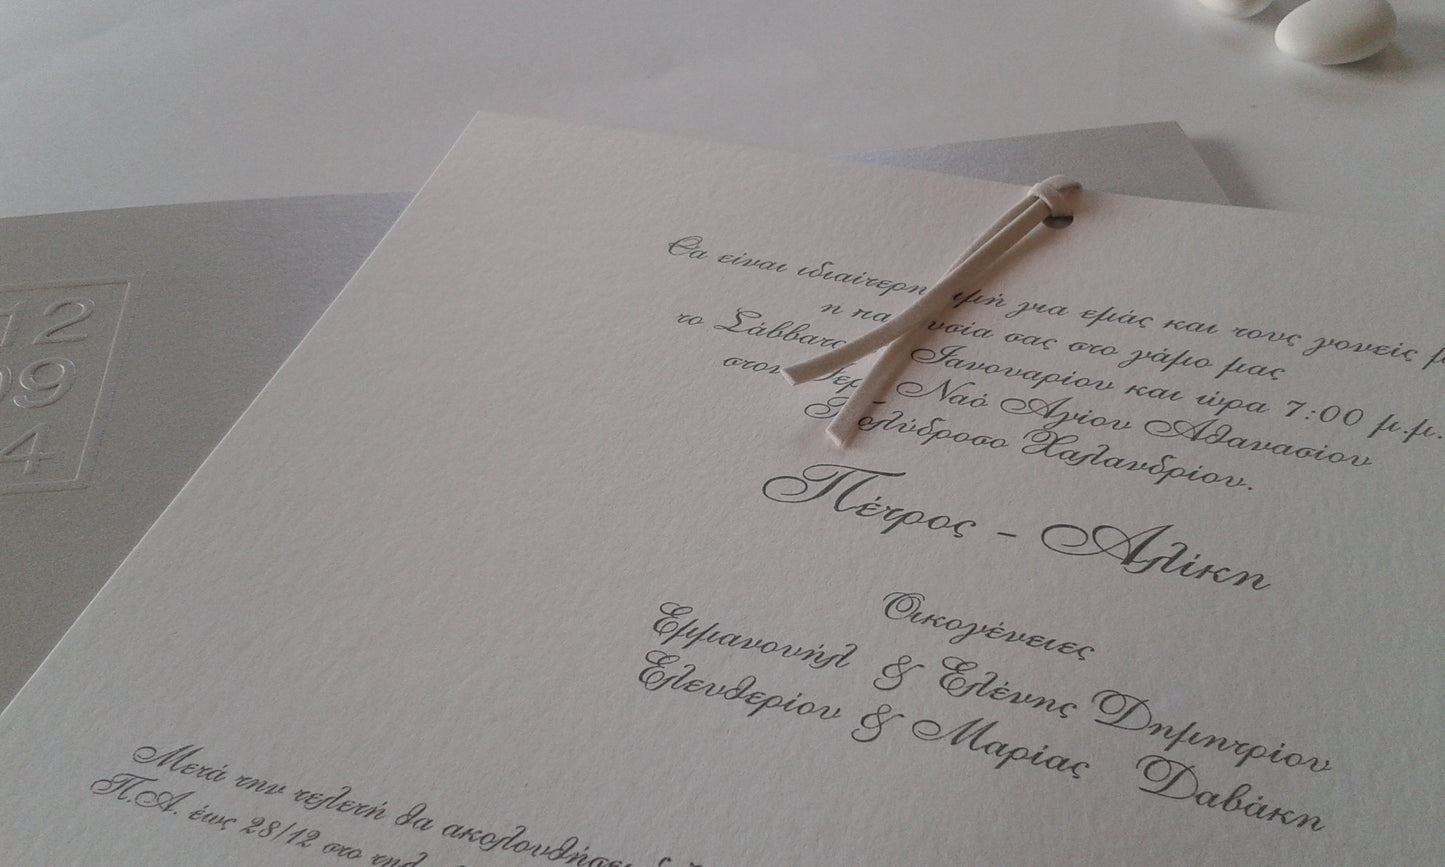 12
09
4
Θα είναι ιδιαίτερη τιμή για εμάς και τους γονείς
η παρουσία σας στο γάμο μας
το Σάββατο Ιανουαρίου και ώρα 7:00 μ.μ.
στον Ιερό Ναό Αγίου Αθανασίου
Πολύδροσο Χαλανδρίου.
Πέτρος - Αλίκη
Οικογένειες
Εμμανουήλ & Ελένης Δημητρίου
Ελευθερίου & Μαρίας Δαβάκη
Μετά την τελετή θα ακολουθήσει
Π.Α. έως 28/12 στο τηλ.